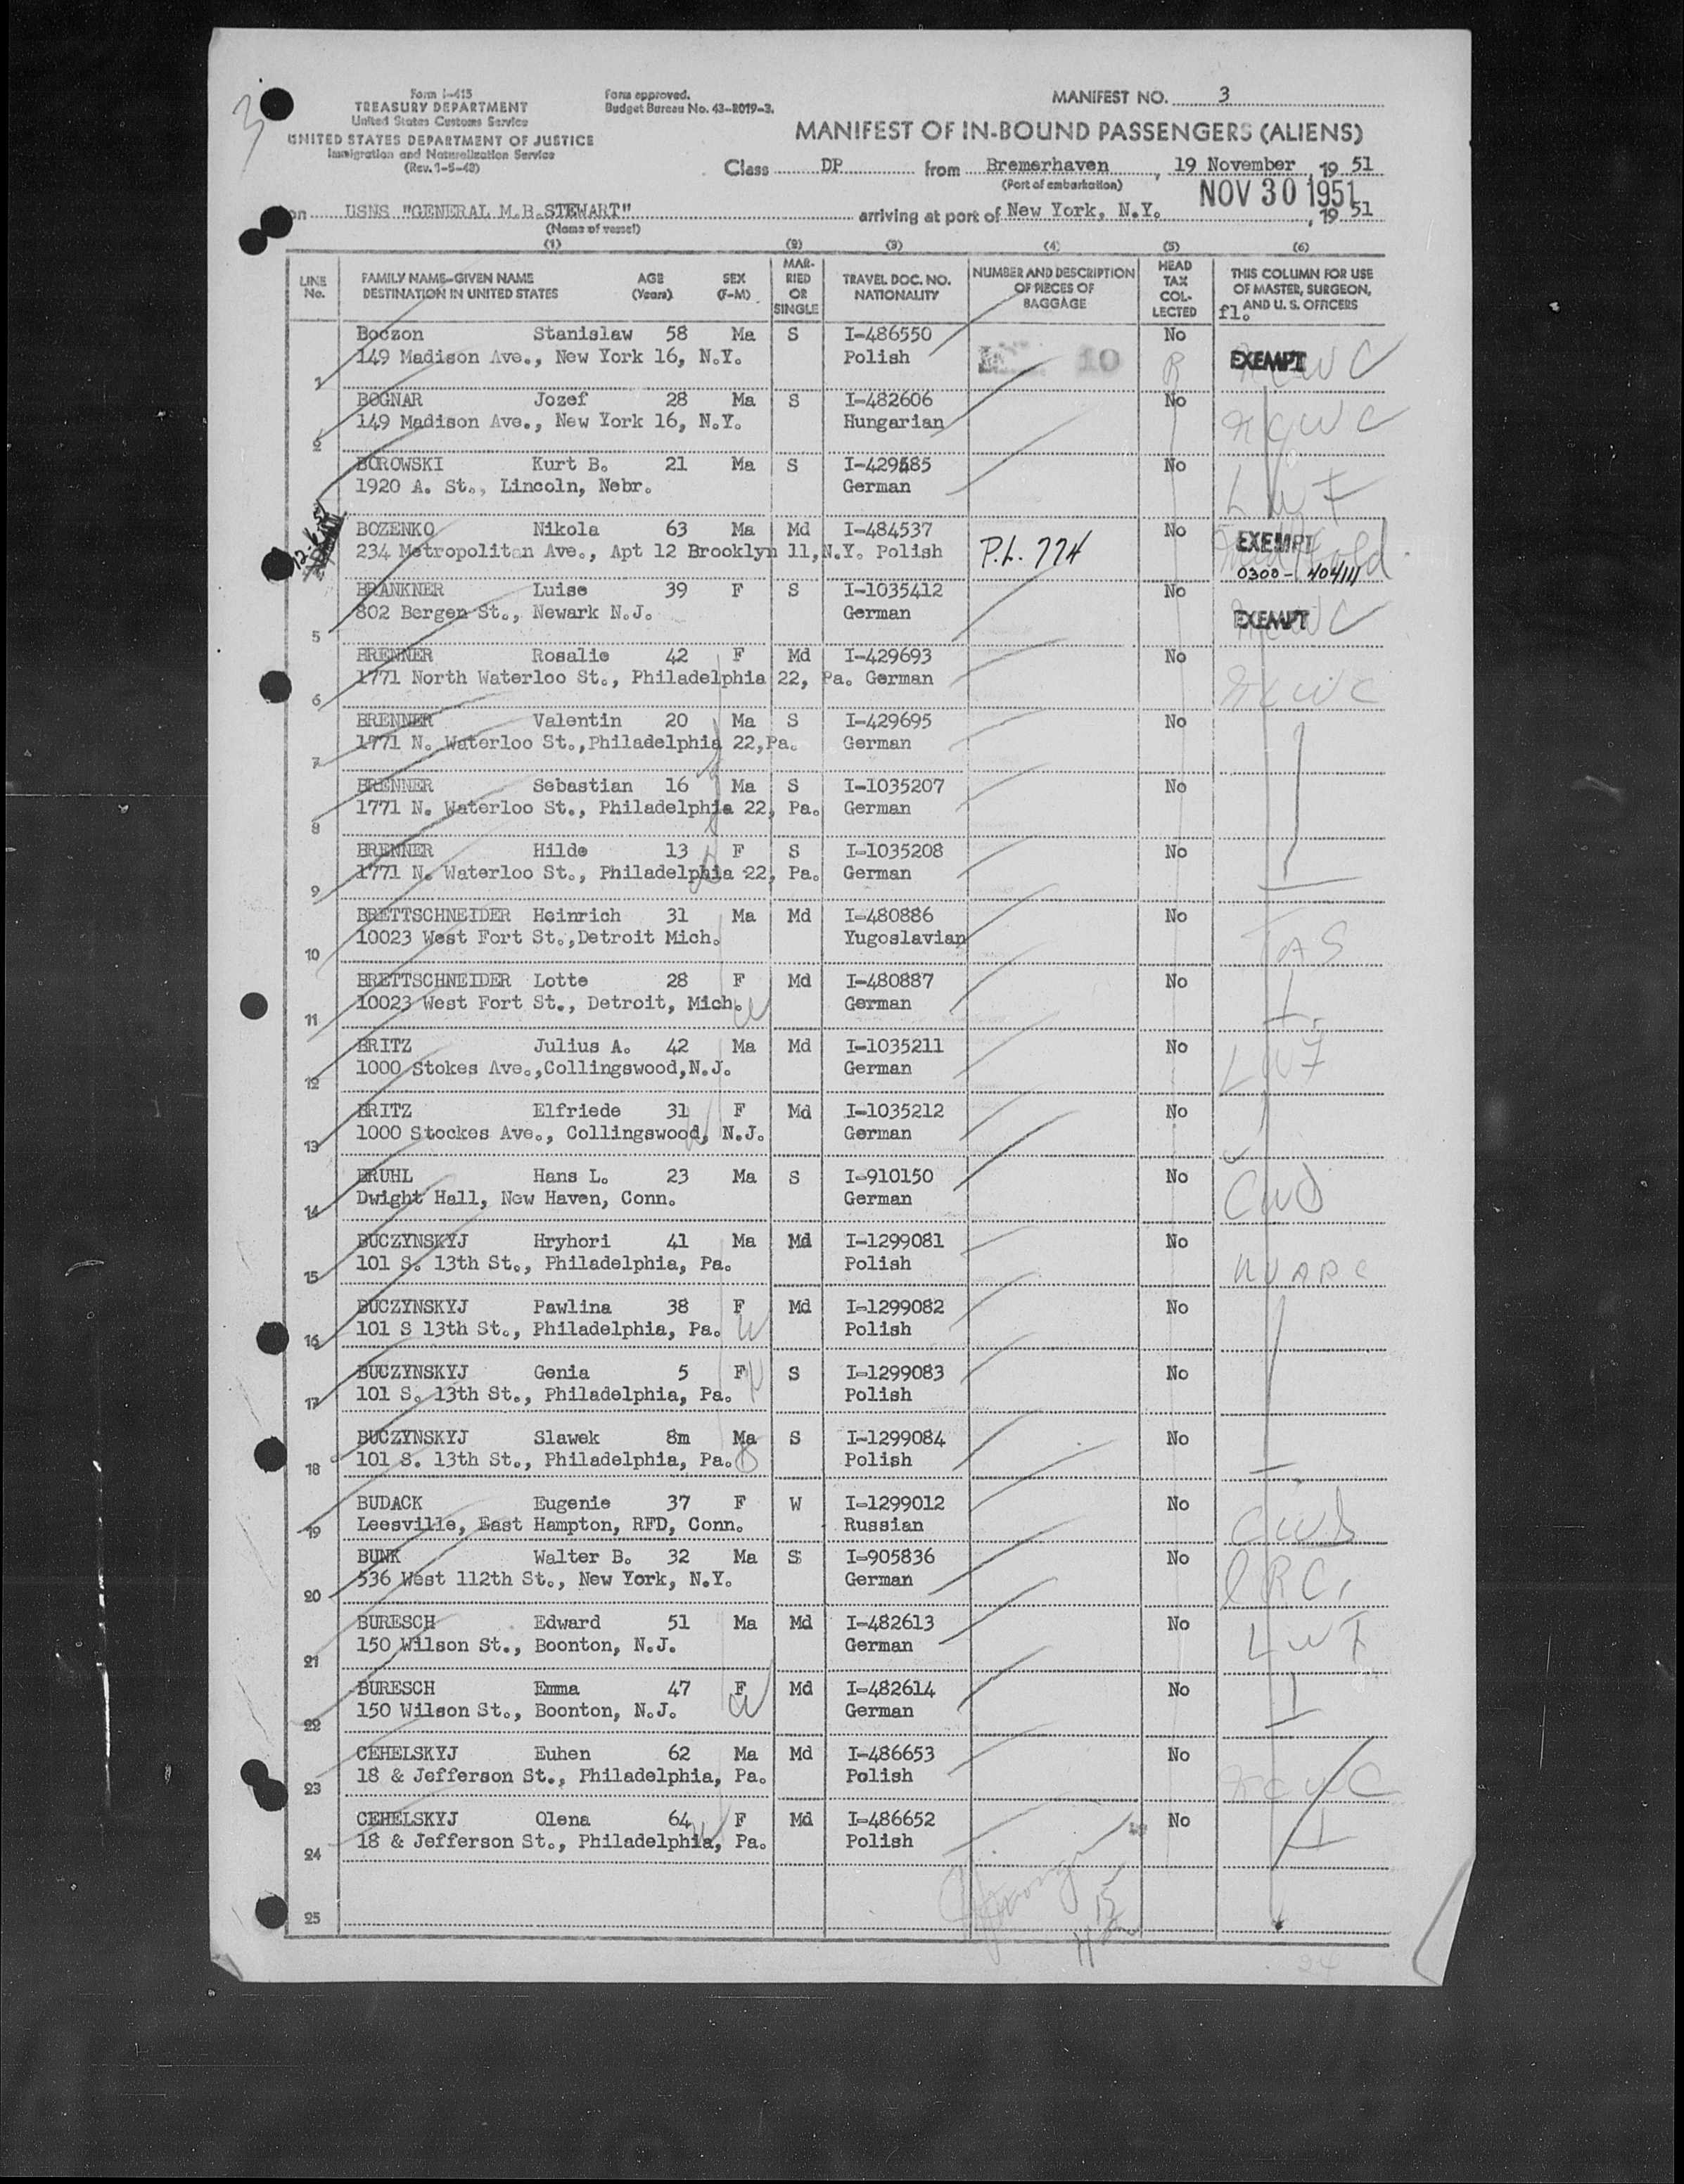 3
Form I-415
TREASURY DEPARTMENT
United States Customs Service
UNITED STATES DEPARTMENT OF JUSTICE
Immigration and Naturalization Service
(Rev. 1-5-48)
Form approved.
Budget Bureau No. 43-R019-3.
MANIFEST NO. 3
MANIFEST OF IN-BOUND PASSENGERS (ALIENS)
Class DP from Bremerhaven, 19 November, 19 51
(Port of embarkation)
NOV 30 1951
on USNS "GENERAL M.B.STEWART" arriving at port of New York, N.Y., 19 51
(Name of vessel)
(1) (2) (3) (4) (5) (6)
LINE No. FAMILY NAME-GIVEN NAME DESTINATION IN UNITED STATES AGE (Years) SEX (F-M) MARRIED OR SINGLE TRAVEL DOC. NO. NATIONALITY NUMBER AND DESCRIPTION OF PIECES OF BAGGAGE HEAD TAX COLLECTED THIS COLUMN FOR USE OF MASTER, SURGEON, AND U. S. OFFICERS
fl.
Boczon Stanislaw 58 Ma S I-486550 No
1 149 Madison Ave., New York 16, N.Y. Polish 10 R EXEMPT
BOGNAR Jozef 28 Ma S I-482606 No
2 149 Madison Ave., New York 16, N.Y. Hungarian NCWC
BOROWSKI Kurt B. 21 Ma S I-429585 No
1920 A. St., Lincoln, Nebr. German LWF
BOZENKO Nikola 63 Ma Md I-484537 No
234 Metropolitan Ave., Apt 12 Brooklyn 11,N.Y. Polish P.L. 774 EXEMPT
0300-404111
BRANKNER Luise 39 F S I-1035412 No
5 802 Bergen St., Newark N.J. German EXEMPT
BRENNER Rosalie 42 F Md I-429693 No
6 1771 North Waterloo St., Philadelphia 22, Pa. German NCWC
BRENNER Valentin 20 Ma S I-429695 No
7 1771 N. Waterloo St.,Philadelphia 22,Pa. German
BRENNER Sebastian 16 Ma S I-1035207 No
8 1771 N. Waterloo St., Philadelphia 22, Pa. German
BRENNER Hilde 13 F S I-1035208 No
9 1771 N. Waterloo St., Philadelphia 22, Pa. German
BRETTSCHNEIDER Heinrich 31 Ma Md I-480886 No
10 10023 West Fort St.,Detroit Mich. Yugoslavian
BRETTSCHNEIDER Lotte 28 F Md I-480887 No
11 10023 West Fort St., Detroit, Mich. German
BRITZ Julius A. 42 Ma Md I-1035211 No
12 1000 Stokes Ave.,Collingswood,N.J. German LWF
BRITZ Elfriede 31 F Md I-1035212 No
13 1000 Stockes Ave., Collingswood, N.J. German
BRUHL Hans L. 23 Ma S I-910150 No
14 Dwight Hall, New Haven, Conn. German CWS
BUCZYNSKYJ Hryhori 41 Ma Md I-1299081 No
15 101 S. 13th St., Philadelphia, Pa. Polish UUARC
BUCZYNSKYJ Pawlina 38 F Md I-1299082 No
16 101 S 13th St., Philadelphia, Pa. Polish
BUCZYNSKYJ Genia 5 F S I-1299083 No
17 101 S. 13th St., Philadelphia, Pa. Polish
BUCZYNSKYJ Slawek 8m Ma S I-1299084 No
18 101 S. 13th St., Philadelphia, Pa. Polish
BUDACK Eugenie 37 F W I-1299012 No
19 Leesville, East Hampton, RFD, Conn. Russian CWS
BUNK Walter B. 32 Ma S I-905836 No
20 536 West 112th St., New York, N.Y. German IRC
BURESCH Edward 51 Ma Md I-482613 No
21 150 Wilson St., Boonton, N.J. German LWF
BURESCH Emma 47 F Md I-482614 No
22 150 Wilson St., Boonton, N.J. German
CEHELSKYJ Euhen 62 Ma Md I-486653 No
23 18 & Jefferson St., Philadelphia, Pa. Polish NCWC
CEHELSKYJ Olena 64 F Md I-486652 No
24 18 & Jefferson St., Philadelphia, Pa. Polish
25
24